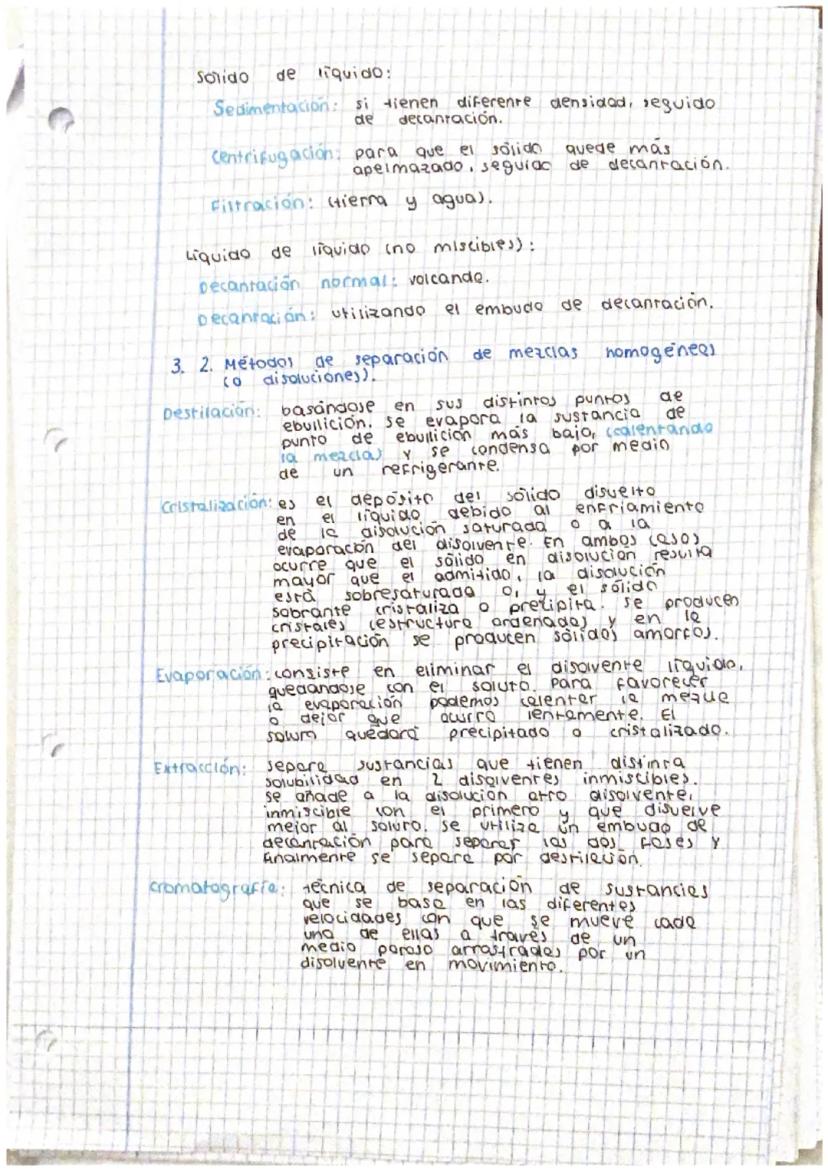 Sólido de líquido:
Sedimentación: si tienen diferente densidad, seguido
de decantación.
Centrifugación: para que el sólido quede más
apelmazado, seguido de decantación.
Filtración: (tierra y agua).
Líquido de líquido (no miscibles):
Decantación normal: volcando.
Decantación: utilizando el embudo de decantación.
3. 2. Métodos de separación de mezclas homogéneas
(o disoluciones).
Destilación: basándose en sus distintos puntos de
ebullición. Se evapora la sustancia de
punto de ebullición más bajo, (calentando
la mezcla) y se condensa por medio
de un refrigerante.
Cristalización: es el depósito del sólido disuelto
en el líquido debido al enfriamiento
de la disolución saturada o a la
evaporación del disolvente. En ambos casos
ocurre que el sólido en disolución resulta
mayor que el admitido, la disolución
está sobresaturada o, y el sólido
sobrante cristaliza o precipita. Se producen
cristales (estructura ordenada) y en la
precipitación se producen sólidos amorfos.
Evaporación: consiste en eliminar el disolvente líquido,
quedándose con el soluto. Para favorecer
la evaporación podemos calentar la mezcla
o dejar que ocurra lentamente. El
soluto quedará precipitado o cristalizado.
Extracción: separa sustancias que tienen distinta
solubilidad en 2 disolventes inmiscibles.
Se añade a la disolución otro disolvente,
inmiscible con el primero y que disuelve
mejor al soluto. Se utiliza un embudo de
decantación para separar las dos fases y
finalmente se separa por destilación.
Cromatografía: técnica de separación de sustancias
que se basa en las diferentes
velocidades con que se mueve cada
una de ellas a través de un
medio poroso arrastradas por un
disolvente en movimiento.